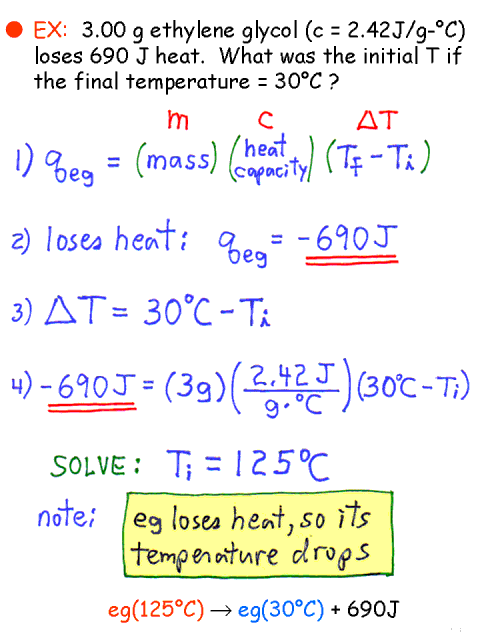 EX: 3.00 g ethylene glycol (c = 2.42J/g-°C)
loses 690 J heat. What was the initial T if
the final temperature = 30°C ?
m c ΔT
1) qbeg = (mass) (heat capacity) (Tf - Ti)
2) loses heat: qbeg = -690J
3) ΔT = 30°C - Ti
4) -690J = (3g) (2.42 J / g·°C) (30°C - Ti)
SOLVE: Ti = 125°C
note: eg loses heat, so its
temperature drops
eg(125°C) → eg(30°C) + 690J